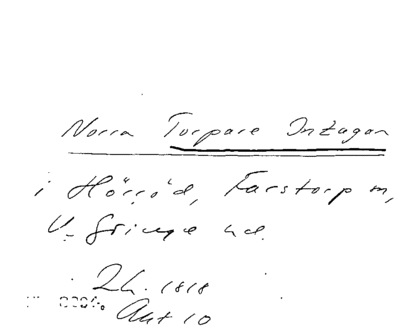 Norra Torpare Intagan
i Hörröd, Farstorp m,
V. Göinge hd.
2h. 1818
Akt 10